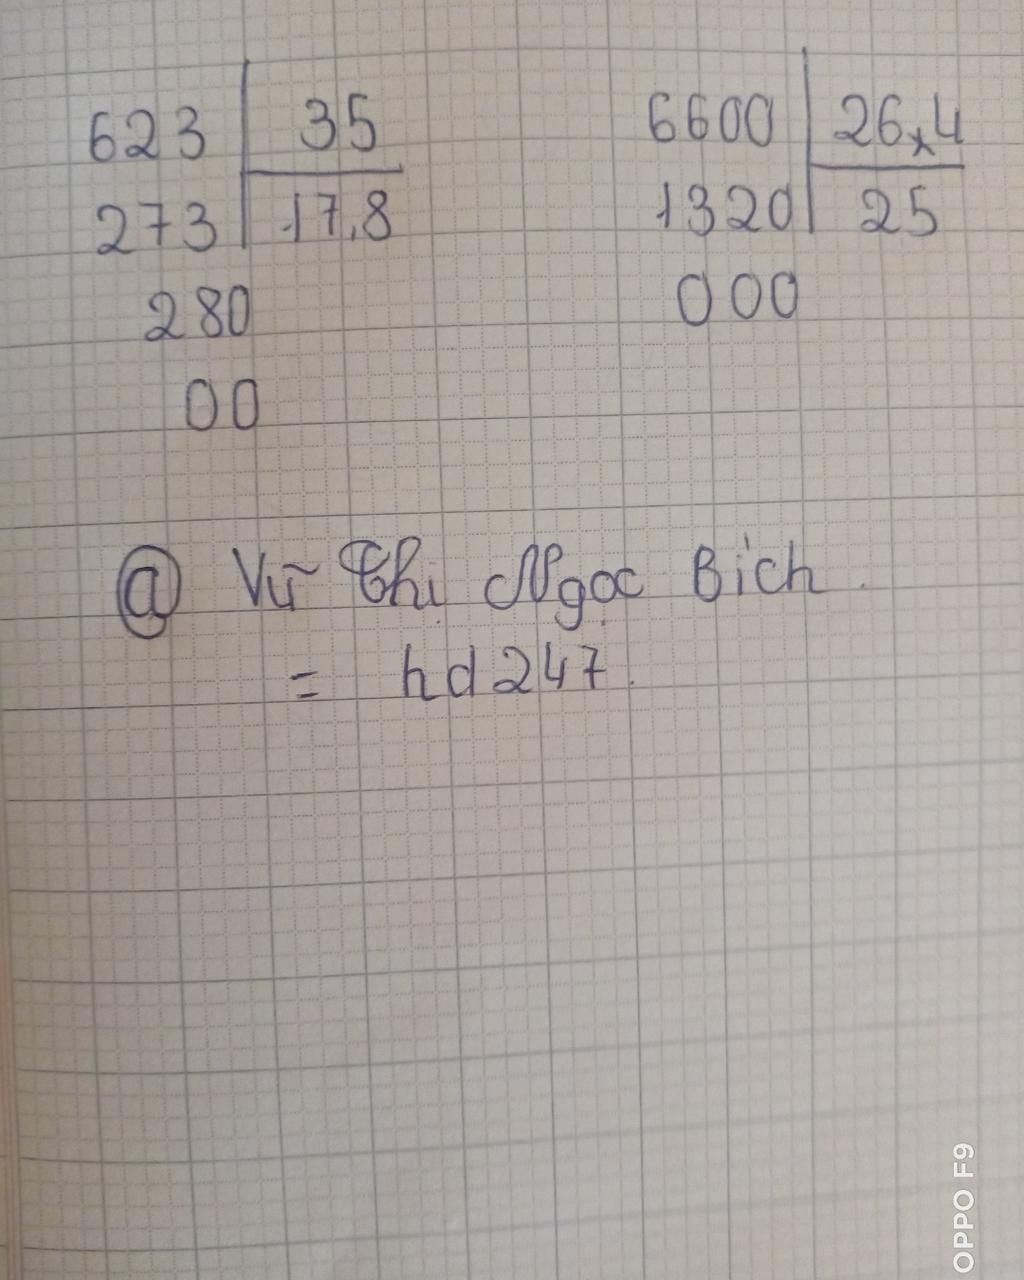 623 35
273 17,8
280
00
6600 26,4
1320 25
000
@ Vũ Thị Ngọc Bích.
= hd247.
OPPO F9